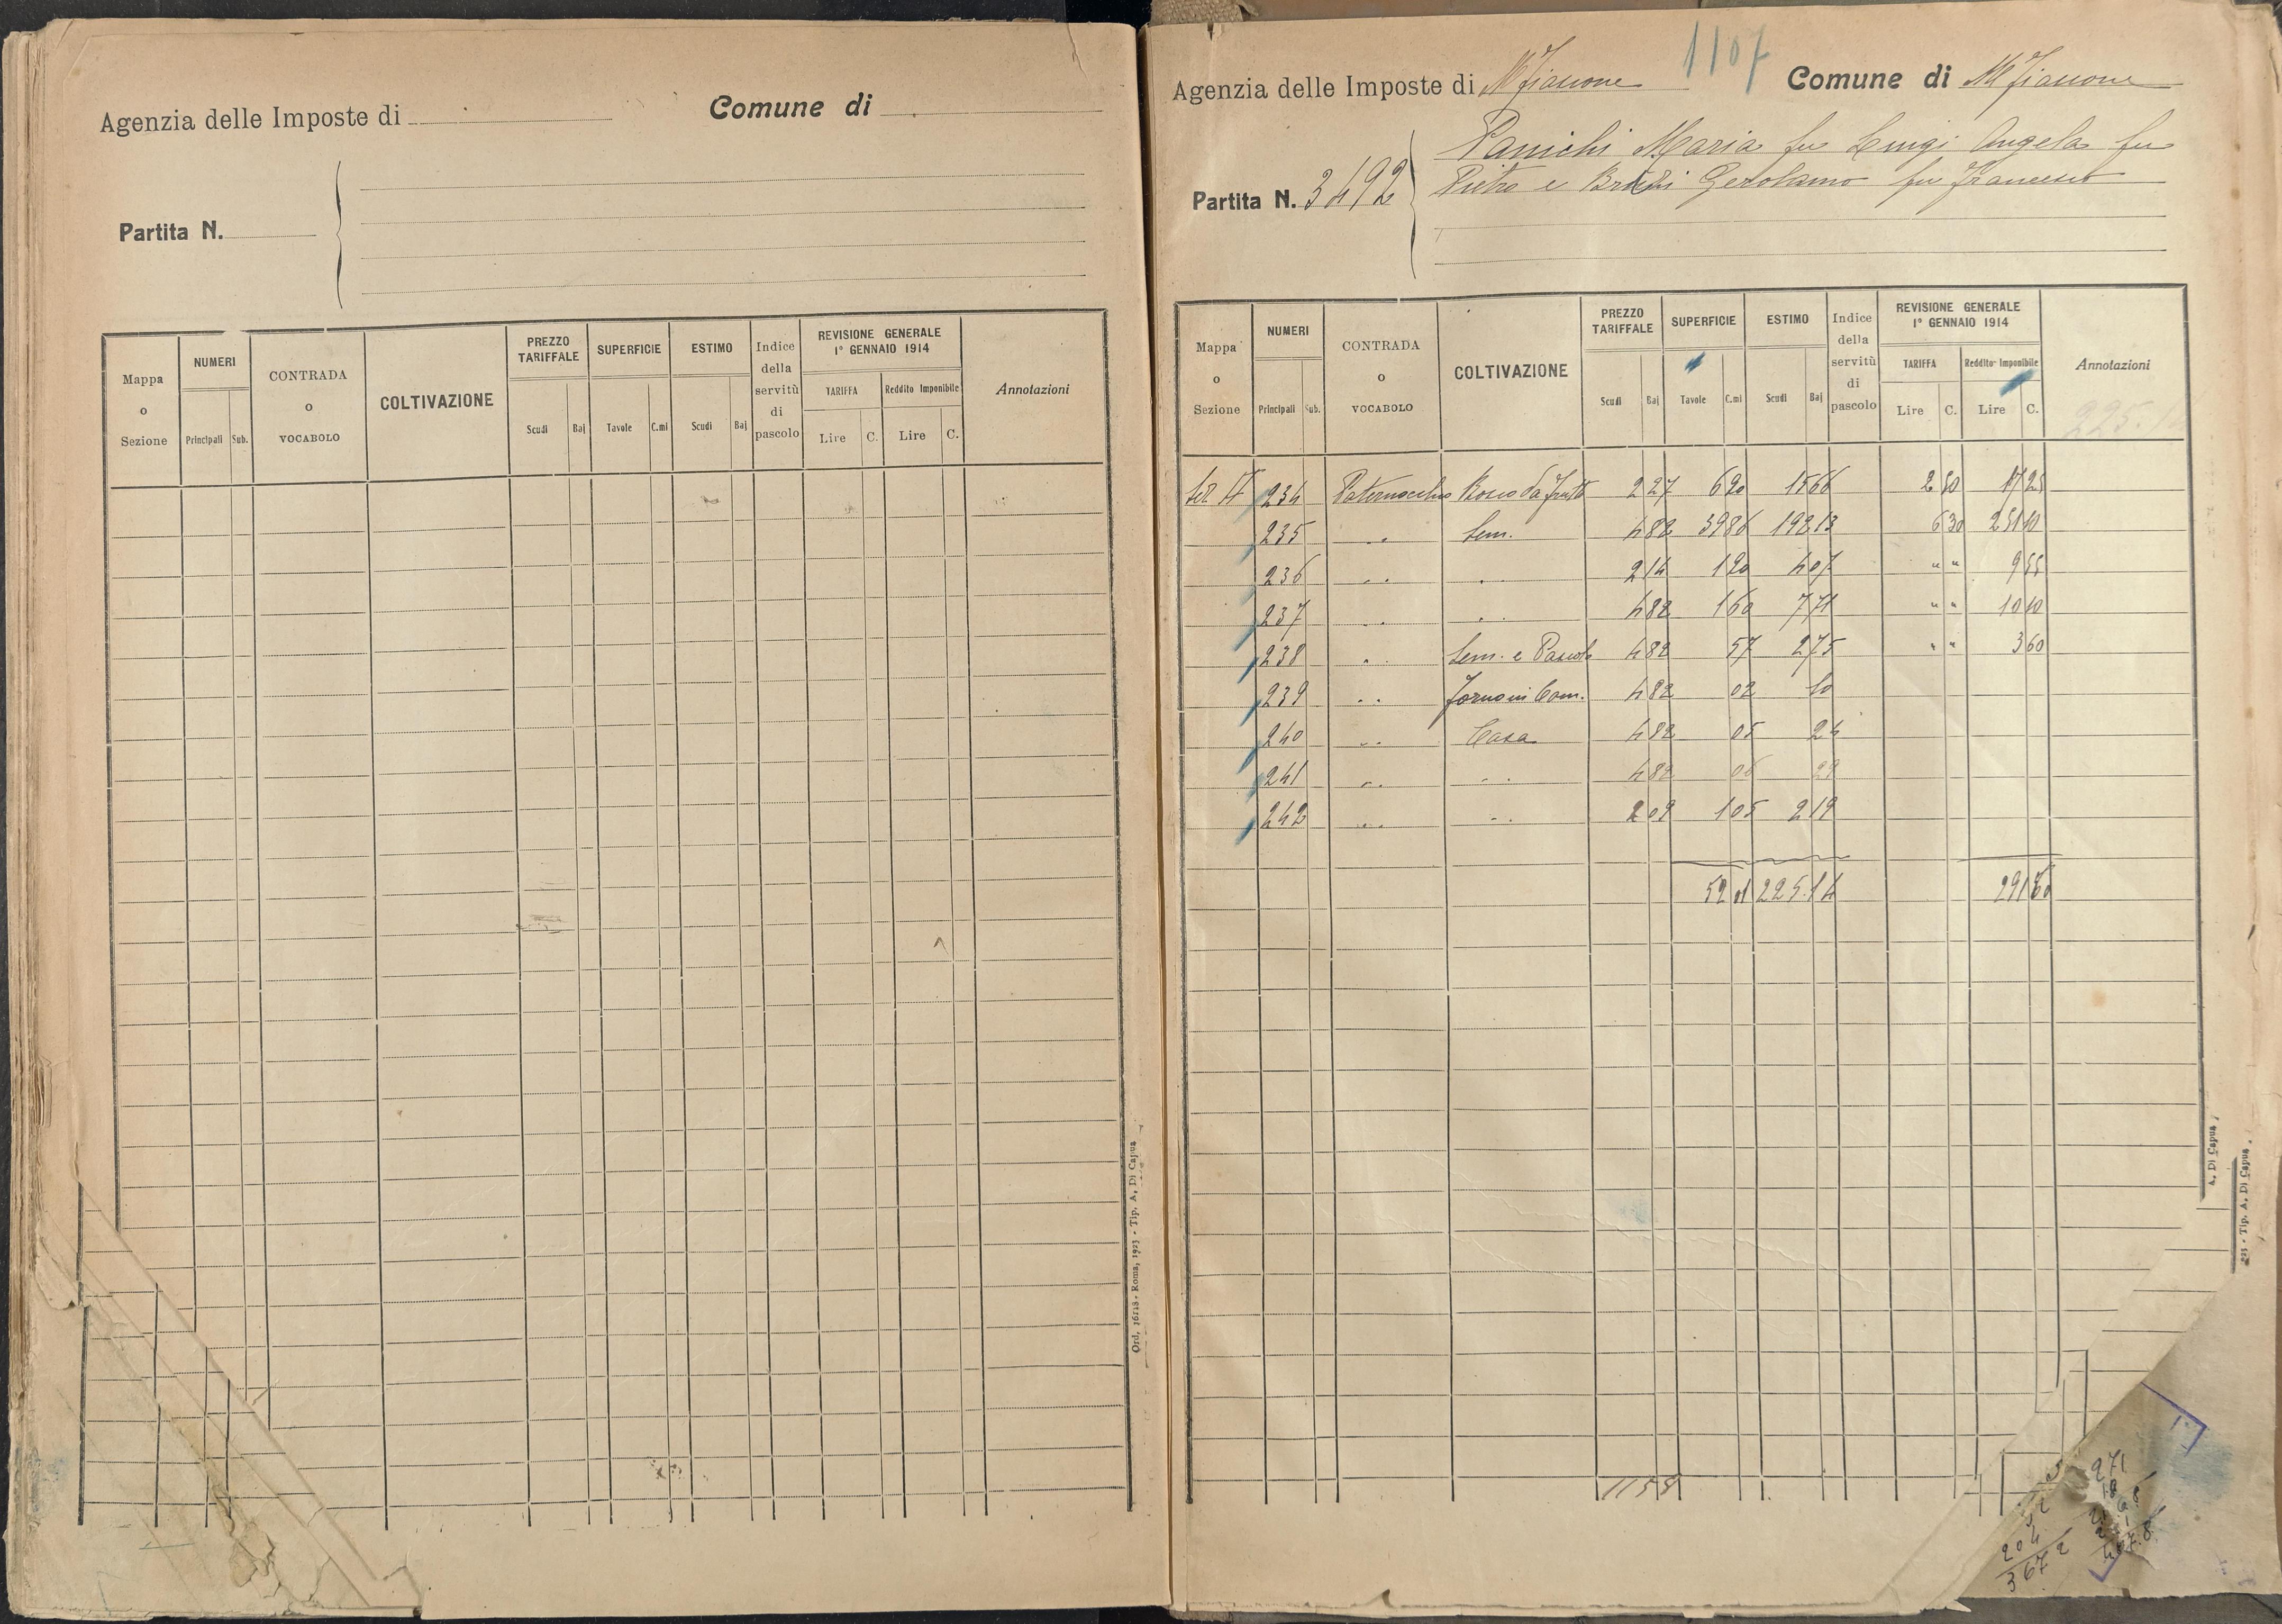 Agenzia delle Imposte di
Comune di
Partita N.
Mappa o Sezione
NUMERI
Principali Sub.
CONTRADA o VOCABOLO
COLTIVAZIONE
PREZZO TARIFFALE
Scudi Baj
SUPERFICIE
Tavole C.mi
ESTIMO
Scudi Baj
Indice della servitù di pascolo
REVISIONE GENERALE
1° GENNAIO 1914
TARIFFA Reddito Imponibile
Lire C. Lire C.
Annotazioni
Ord. 16118 - Roma, 1923 - Tip. A. Di Capua
1107
Agenzia delle Imposte di M Fiascone Comune di M Fiascone
Partita N. 3492
Panichi Maria fu Luigi Angela fu
Pietro e Gerolamo fu Francesco
Mappa o Sezione
NUMERI
Principali Sub.
CONTRADA o VOCABOLO
COLTIVAZIONE
PREZZO TARIFFALE
Scudi Baj
SUPERFICIE
Tavole C.mi
ESTIMO
Scudi Baj
Indice della servitù di pascolo
REVISIONE GENERALE
1° GENNAIO 1914
TARIFFA Reddito Imponibile
Lire C. Lire C.
Annotazioni
225.14
234 Bosco da frutto 2 27 6 20 15 66 2 50 17 25
235 " Sem. 4 82 39 86 192 13 6 30 251 10
236 " " 2 14 1 90 4 07 " " 9 55
237 " " 4 82 1 60 7 71 " " 10 10
238 " Sem. e Pascolo 4 82 57 2 75 " " 3 60
239 " 4 82 02 10
240 " Casa 4 82 05 24
241 " " 4 82 06 29
242 " " 2 09 1 05 2 19
52 01 225.14 291 60
1155
204
3672
271
A. Di Capua
923 - Tip. A. Di Capua